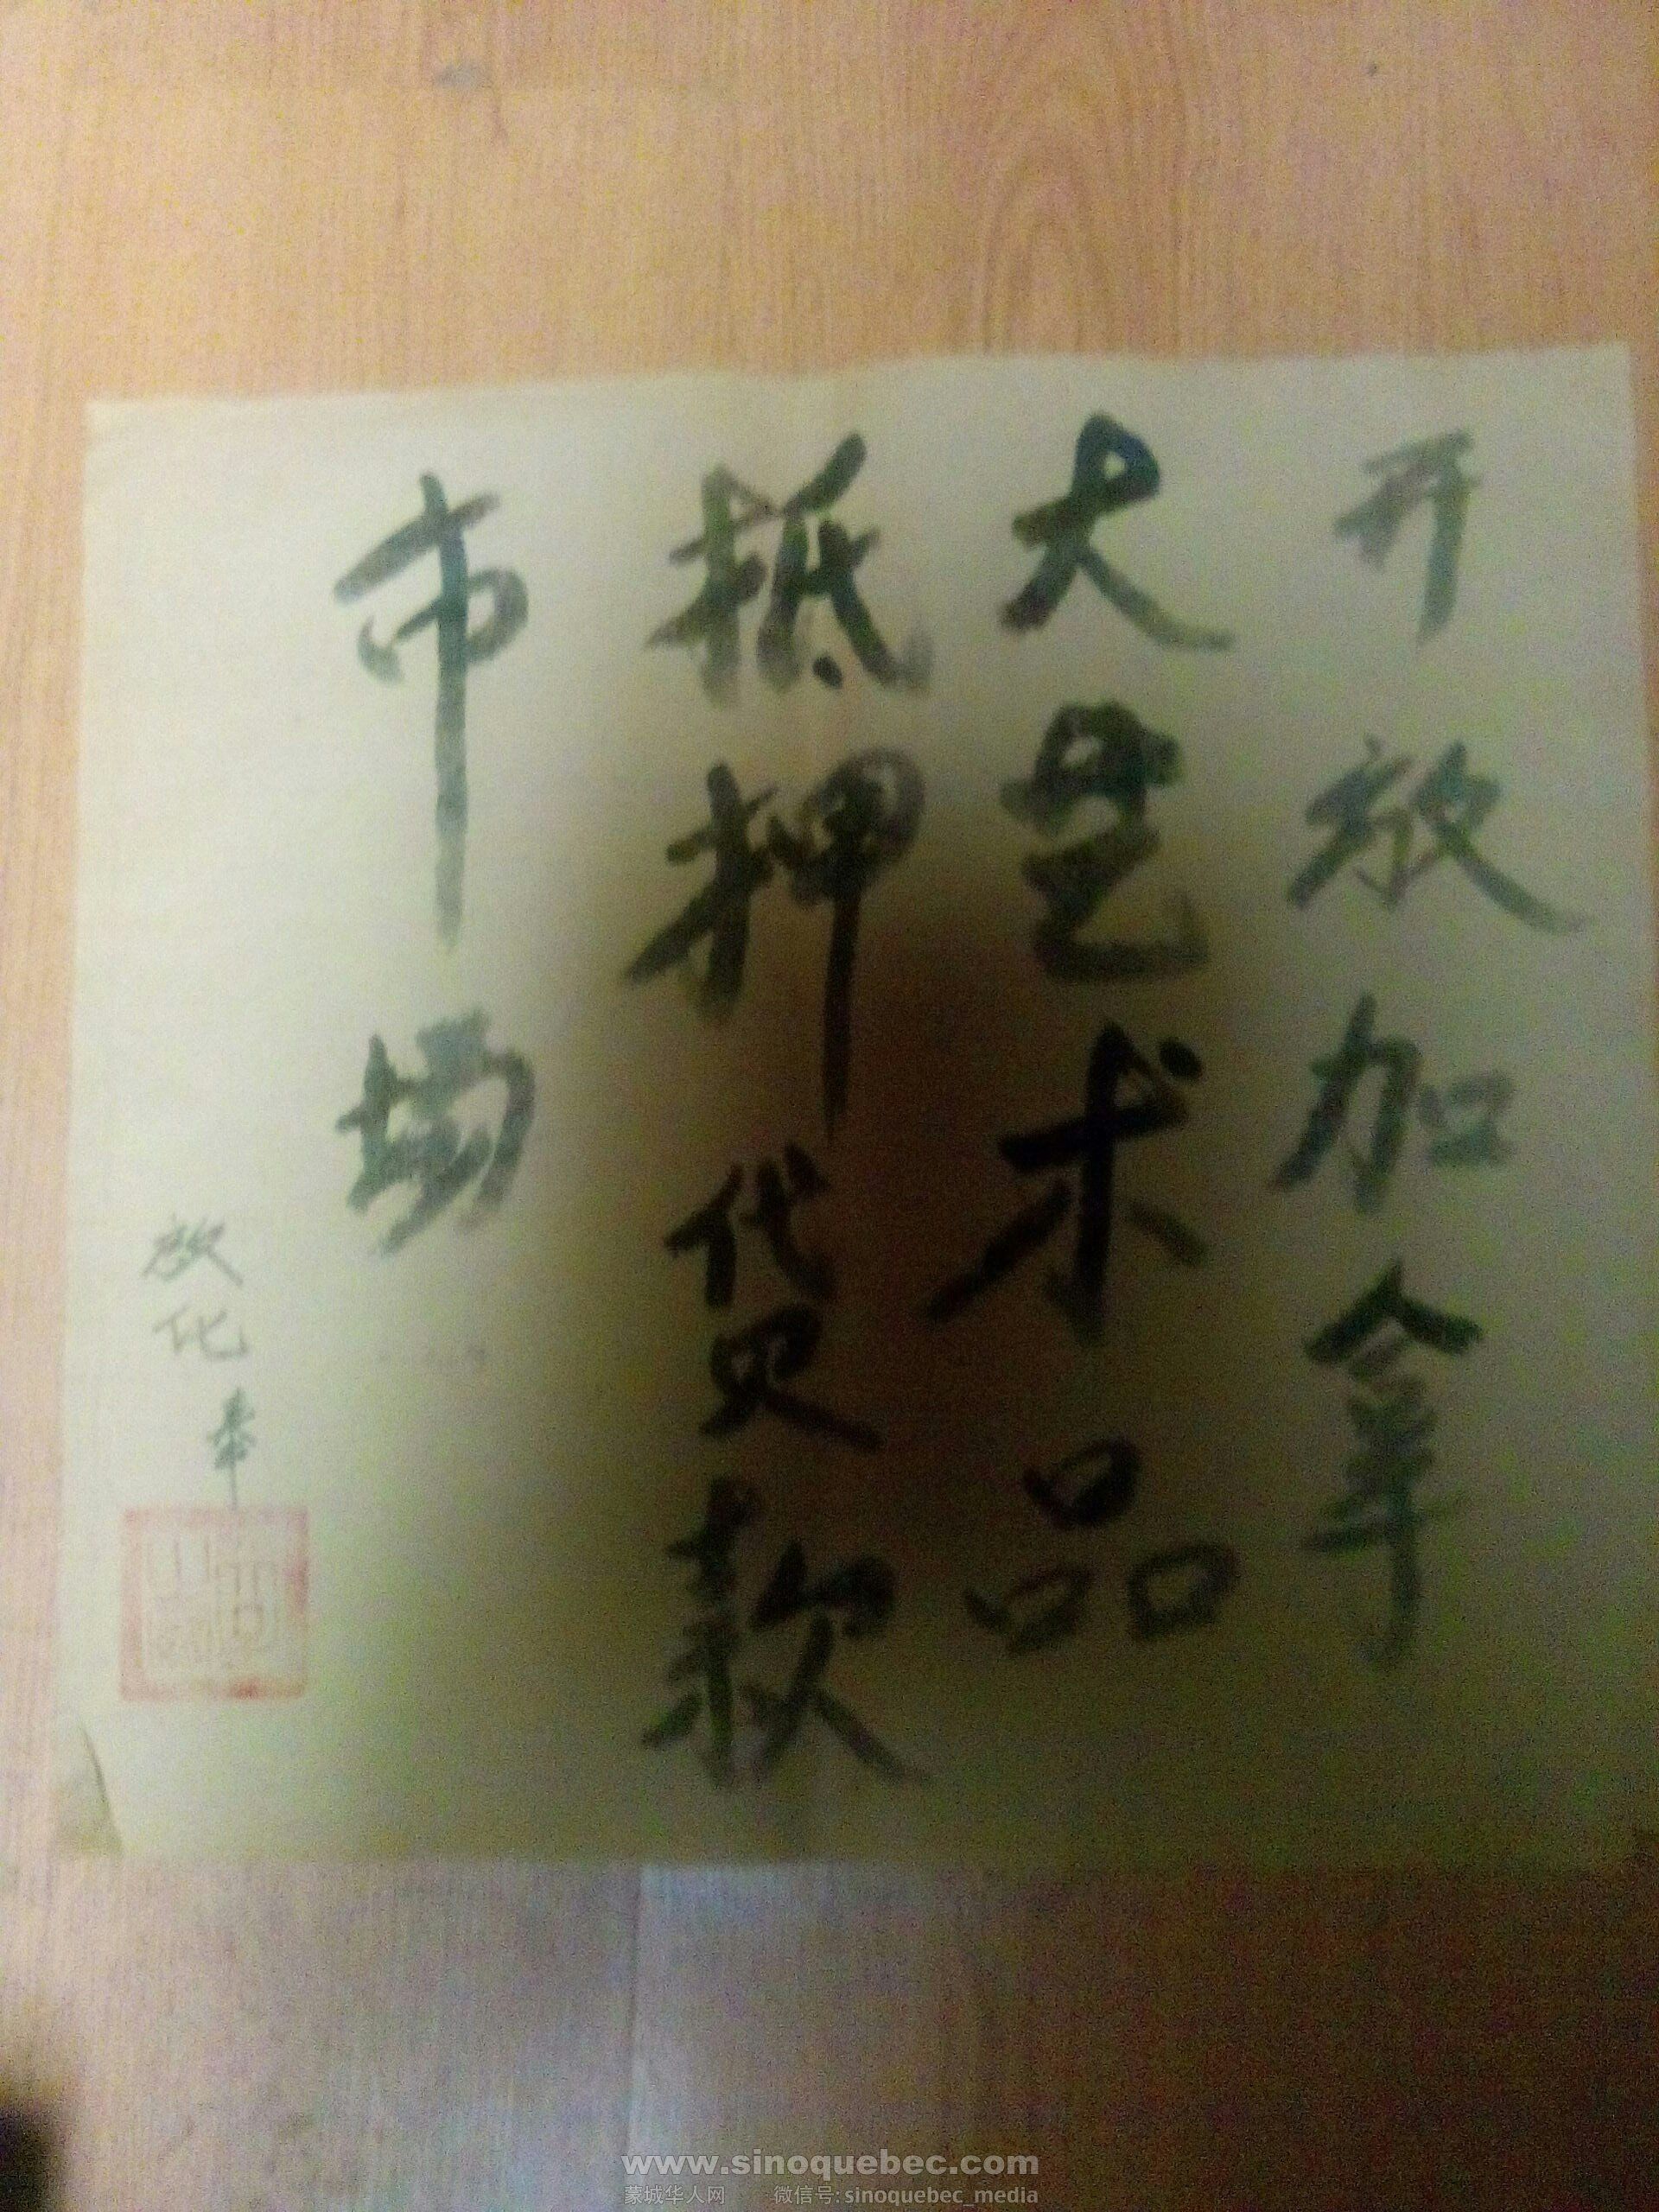 开放加拿
大艺术品
抵押贷款
市场
放化奉
www.sinoquebec.com
蒙城华人网 微信号: sinoquebec_media